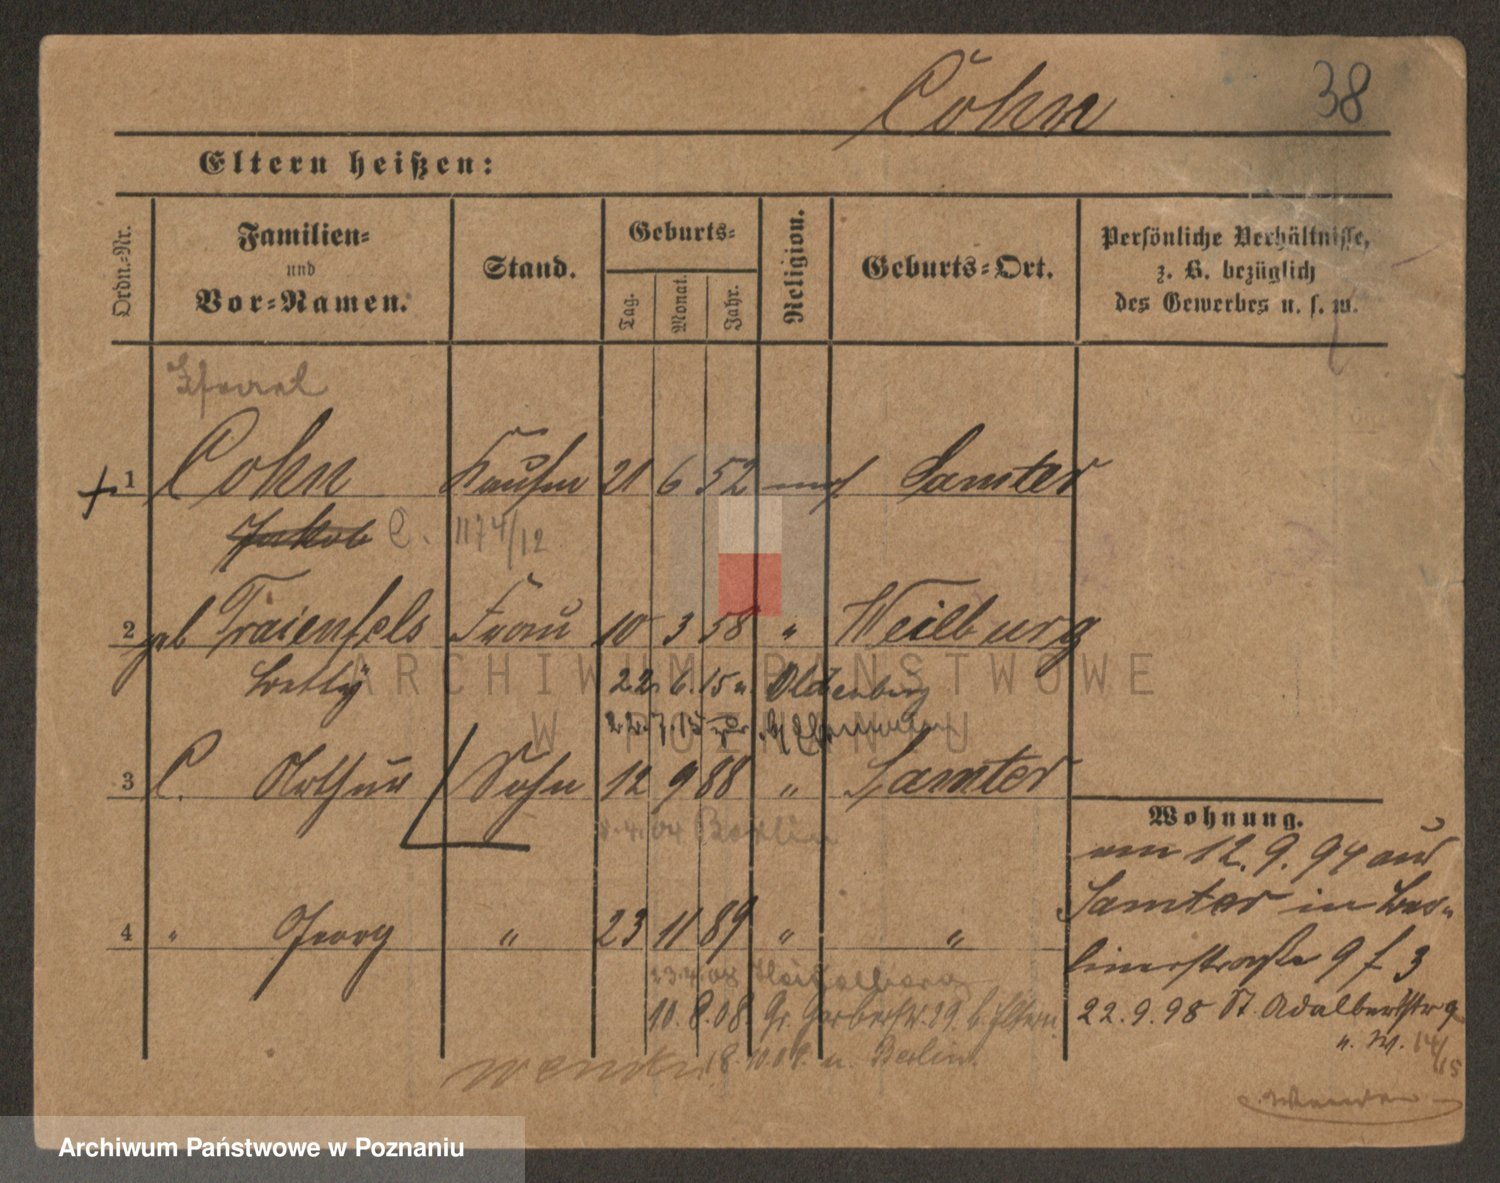 Cohn 38
Eltern heißen:
Ordn.-Nr.
Familien-
und
Vor-Namen.
Stand.
Geburts-
Tag.
Monat.
Jahr.
Religion.
Geburts-Ort.
Persönliche Verhältnisse,
z. B. bezüglich
des Gewerbes u. s. w.
1 Cohn Kaufm 21 6 52 mos Samter
Jakob C. 1174/12
2 geb Traienfels Frau 10 3 58 " Weilburg
Betty 22. 6. 15 n. Oldenburg
22. 7. 15
3 C. Arthur Sohn 12 9 88 " Samter
4. 04 Berlin
4 " Georg " 23 11 89 " "
23. 4. 08 Heidelberg
10. 8. 08. Gr. Gerberstr. 29 b. Eltern
18. 10. 09. n. Berlin.
Wohnung.
am 12. 9. 94 aus
Samter in Ber-
linerstraße 9 f 3
22. 9. 98 St. Adalbertstr 9
ARCHIWUM PAŃSTWOWE
W POZNANIU
Archiwum Państwowe w Poznaniu